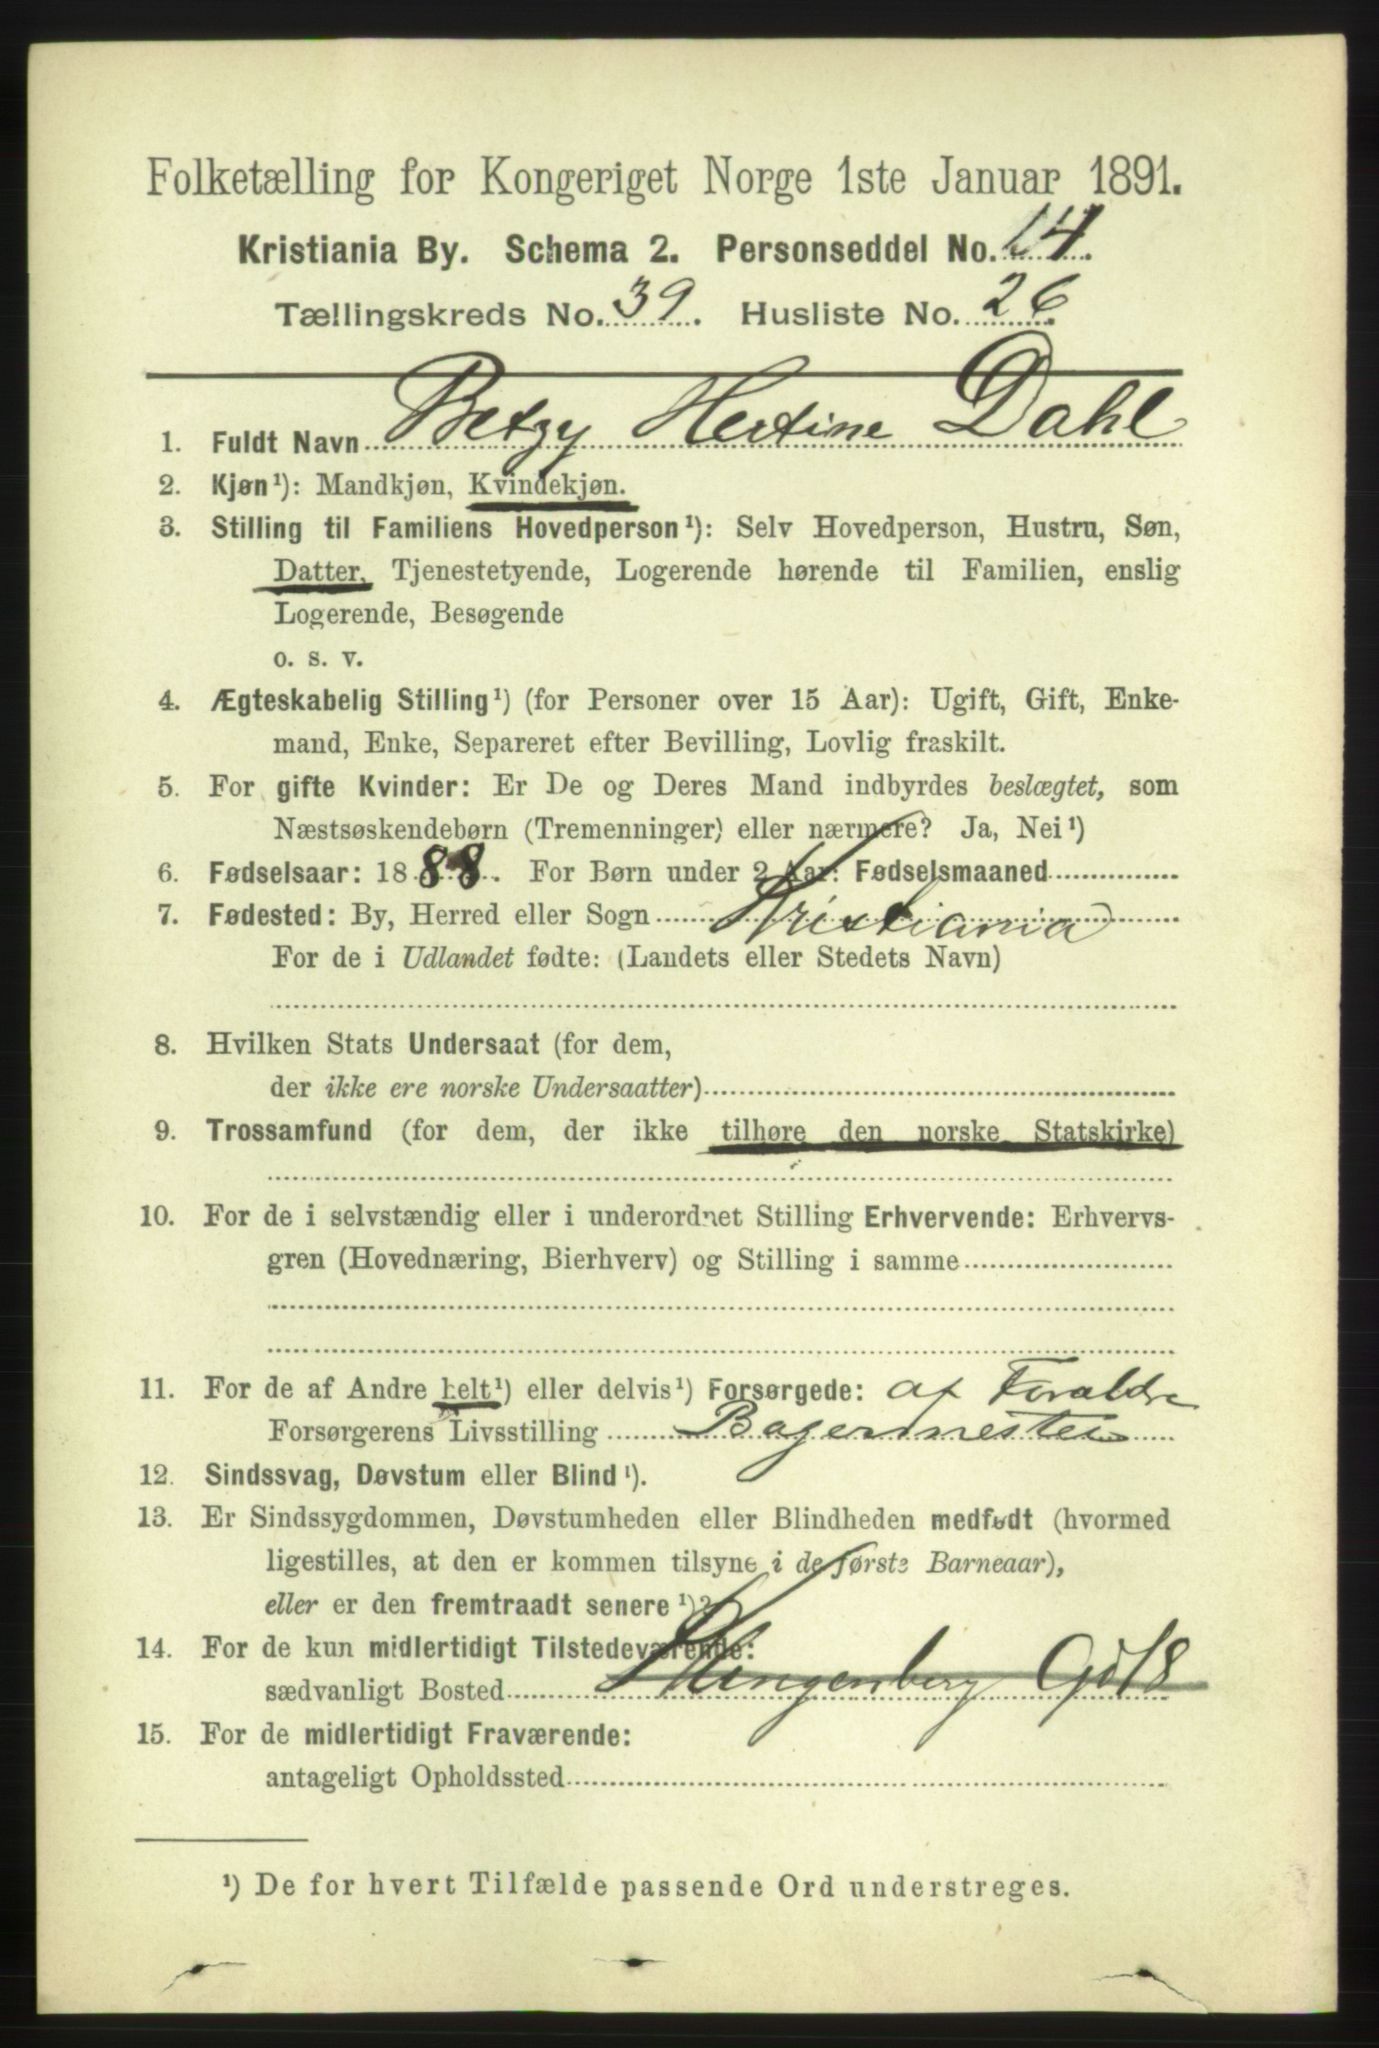 Folketælling for Kongeriget Norge 1ste Januar 1891.
Kristiania By. Schema 2. Personseddel No. 14.
Tællingskreds No. 39. Husliste No. 26.
1. Fuldt Navn Betzy Hertine Dahl
2. Kjøn¹): Mandkjøn, Kvindekjøn.
3. Stilling til Familiens Hovedperson¹): Selv Hovedperson, Hustru, Søn,
Datter, Tjenestetyende, Logerende hørende til Familien, enslig
Logerende, Besøgende
o. s. v.
4. Ægteskabelig Stilling¹) (for Personer over 15 Aar): Ugift, Gift, Enke-
mand, Enke, Separeret efter Bevilling, Lovlig fraskilt.
5. For gifte Kvinder: Er De og Deres Mand indbyrdes beslægtet, som
Næstsøskendebørn (Tremenninger) eller nærmere? Ja, Nei¹)
6. Fødselsaar: 1888. For Børn under 2 Aar: Fødselsmaaned
7. Fødested: By, Herred eller Sogn Kristiania
For de i Udlandet fødte: (Landets eller Stedets Navn)
8. Hvilken Stats Undersaat (for dem,
der ikke ere norske Undersaatter)
9. Trossamfund (for dem, der ikke tilhøre den norske Statskirke)
10. For de i selvstændig eller i underordnet Stilling Erhvervende: Erhvervs-
gren (Hovednæring, Bierhverv) og Stilling i samme
11. For de af Andre helt¹) eller delvis¹) Forsørgede: af Foraldre
Forsørgerens Livsstilling Bagermester
12. Sindssvag, Døvstum eller Blind¹).
13. Er Sindssygdommen, Døvstumheden eller Blindheden medfødt (hvormed
ligestilles, at den er kommen tilsyne i de første Barneaar),
eller er den fremtraadt senere¹)?
14. For de kun midlertidigt Tilstedeværende:
sædvanligt Bosted Klingenberg Gd 18
15. For de midlertidigt Fraværende:
antageligt Opholdssted
¹) De for hvert Tilfælde passende Ord understreges.